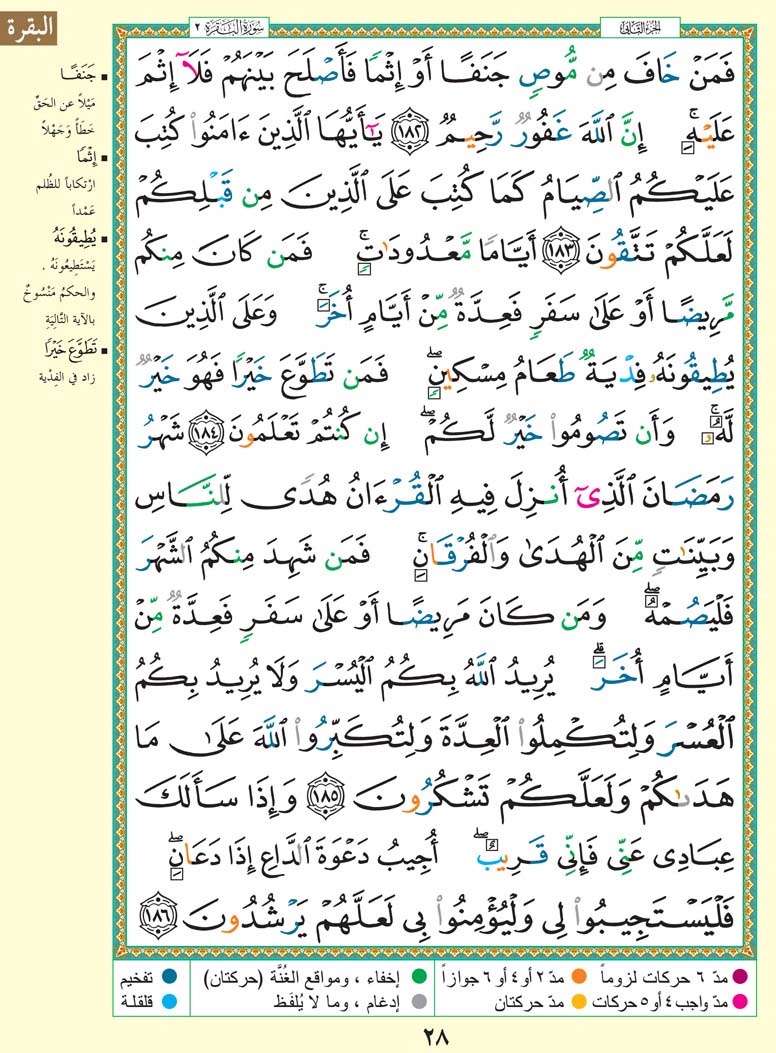 البقرة
سورة البقرة ٢
الجزء الثاني
فَمَنْ خَافَ مِن مُّوصٍ جَنَفًا أَوْ إِثْمًا فَأَصْلَحَ بَيْنَهُمْ فَلَآ إِثْمَ
عَلَيْهِ ۚ إِنَّ ٱللَّهَ غَفُورٌ رَّحِيمٌ ١٨٢ يَـٰٓأَيُّهَا ٱلَّذِينَ ءَامَنُوا۟ كُتِبَ
عَلَيْكُمُ ٱلصِّيَامُ كَمَا كُتِبَ عَلَى ٱلَّذِينَ مِن قَبْلِكُمْ
لَعَلَّكُمْ تَتَّقُونَ ١٨٣ أَيَّامًا مَّعْدُودَٰتٍ ۚ فَمَن كَانَ مِنكُم
مَّرِيضًا أَوْ عَلَىٰ سَفَرٍ فَعِدَّةٌ مِّنْ أَيَّامٍ أُخَرَ ۚ وَعَلَى ٱلَّذِينَ
يُطِيقُونَهُۥ فِدْيَةٌ طَعَامُ مِسْكِينٍ ۖ فَمَن تَطَوَّعَ خَيْرًا فَهُوَ خَيْرٌ
لَّهُۥ ۚ وَأَن تَصُومُوا۟ خَيْرٌ لَّكُمْ ۖ إِن كُنتُمْ تَعْلَمُونَ ١٨٤ شَهْرُ
رَمَضَانَ ٱلَّذِىٓ أُنزِلَ فِيهِ ٱلْقُرْءَانُ هُدًى لِّلنَّاسِ
وَبَيِّنَـٰتٍ مِّنَ ٱلْهُدَىٰ وَٱلْفُرْقَانِ ۚ فَمَن شَهِدَ مِنكُمُ ٱلشَّهْرَ
فَلْيَصُمْهُ ۖ وَمَن كَانَ مَرِيضًا أَوْ عَلَىٰ سَفَرٍ فَعِدَّةٌ مِّنْ
أَيَّامٍ أُخَرَ ۗ يُرِيدُ ٱللَّهُ بِكُمُ ٱلْيُسْرَ وَلَا يُرِيدُ بِكُمُ
ٱلْعُسْرَ وَلِتُكْمِلُوا۟ ٱلْعِدَّةَ وَلِتُكَبِّرُوا۟ ٱللَّهَ عَلَىٰ مَا
هَدَىٰكُمْ وَلَعَلَّكُمْ تَشْكُرُونَ ١٨٥ وَإِذَا سَأَلَكَ
عِبَادِى عَنِّى فَإِنِّى قَرِيبٌ ۖ أُجِيبُ دَعْوَةَ ٱلدَّاعِ إِذَا دَعَانِ ۖ
فَلْيَسْتَجِيبُوا۟ لِى وَلْيُؤْمِنُوا۟ بِى لَعَلَّهُمْ يَرْشُدُونَ ١٨٦
جَنَفًا
مَيْلاً عن الحَقِّ
خَطَأً وَجَهْلاً
إِثْمًا
ارْتكاباً للظُلم
عَمْداً
يُطِيقُونَهُ
يَسْتَطِيعُونَهُ .
والحكمُ مَنْسُوخٌ
بالآية التَّاليَةِ
تَطَوَّعَ خَيْرًا
زاد في الفِدْية
مدّ ٦ حركات لزوماً
مدّ ٢ أو ٤ أو ٦ جوازاً
إخفاء ، ومواقع الغُنَّة (حركتان)
تفخيم
مدّ واجب ٤ أو ٥ حركات
مدّ حركتان
إدغام ، وما لا يُلفَظ
قلقلة
٢٨